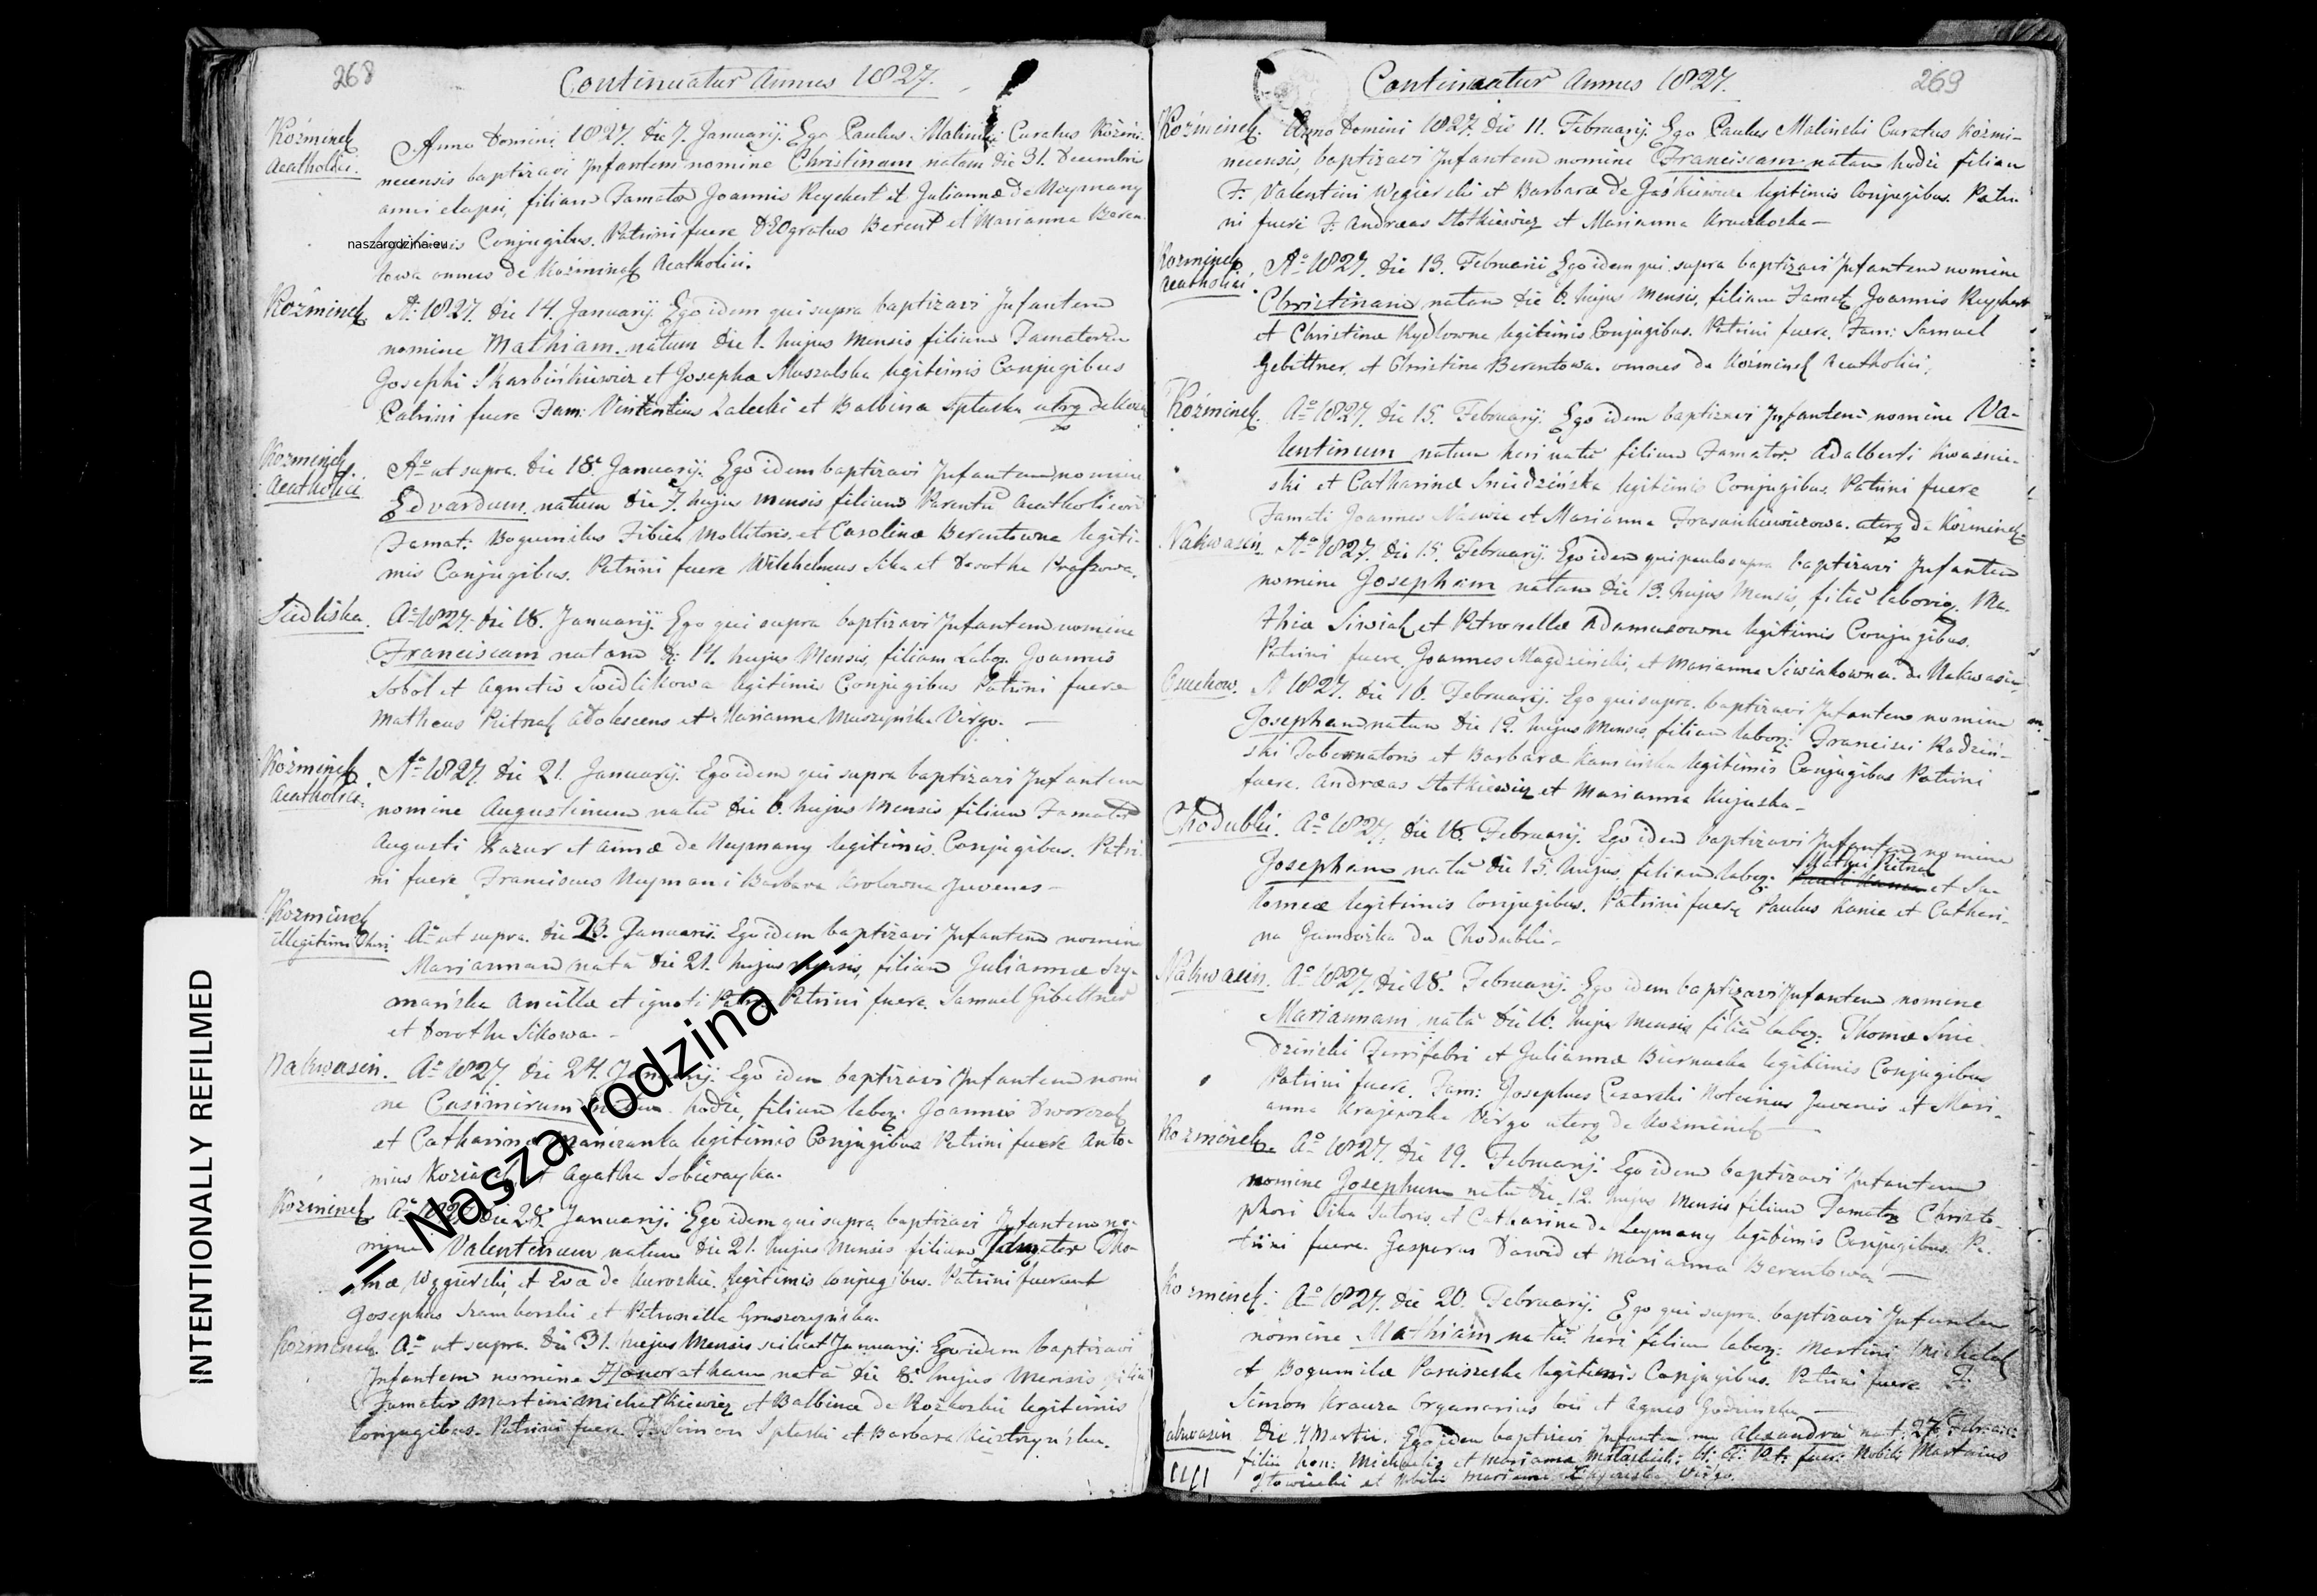 268
Continuatur Annus 1827.
Koźminek
Acatholici.
Anno Domini 1827. die 7. Januarij. Ego Paulus Malinski Curatus Koźmi-
necensis baptizavi Infantem nomine Christinam natam die 31. Decembris
anni elapsi, filiam Famator Joannis Reychert et Julianna de Neymany
legitimis Conjugibus. Patrini fuere DEOgratus Berent et Marianna Beren-
towa omnes de Koźminek Acatholici.
naszarodzina.eu
Koźminek
A: 1827. die 14. Januarij. Ego idem qui supra baptizavi Infantem
nomine Mathiam natum die 1. hujus Mensis filium Famatorum
Josephi Skarbińkiewicz et Josepha Muszalska legitimis Conjugibus
Patrini fuere Fam: Vintentius Zaleski et Balbina Spluska utrq de Koźm
Koźminek
Acatholici
Ao ut supra. die 18. Januarij. Ego idem baptizavi Infantem nomine
Edvardum natum die 7. hujus Mensis filium Parentu Acatholicor
Famat: Bogumilus Fibich Mollitoris et Carolina Berentowna legiti-
mis Conjugibus. Patrini fuere Wilhhelmus Sika et Dorotha
Siedliska.
Ao 1827. die 18. Januarij. Ego qui supra baptizavi Infantem nomine
Franciscam natam d: 14. hujus Mensis, filiam Labor. Joannis
Sobol et Agnetis Swidlikowa legitimis Conjugibus Patrini fuere
Matheus Pietrzak Adolescens et Marianna Muszyńska Virgo. —
Koźminek
Acatholici:
Ao 1827. die 21. Januarij. Ego idem qui supra baptizavi Infantem
nomine Augustinum natu die 6. hujus Mensis filium Famator
Augusti Kazur et Anna de Neymany legitimis Conjugibus. Patri-
ni fuere Franciscus Neyman i Barbara Krolowna Juvenes —
Koźminek
illegitimi Thori
Ao ut supra. die 23. Januarij. Ego idem baptizavi Infantem nomine
Mariannam nata die 21. hujus Mensis, filiam Julianna Szy-
mańska Ancilla et ignoti Patris. Patrini fuere. Samuel Gibeltner
et Dorotha Sikowa. —
Nakwasin.
Ao 1827. die 24. Januarij. Ego idem baptizavi Infantem nomi
ne Casimirum natum hodie, filium labor: Joannis Dworczak
et Catharina legitimis Conjugibus Patrini fuere Anto-
nius et Agatha Sobierayka.
Koźminek
Ao 1827. die 28. Januarij. Ego idem qui supra baptizavi Infantem no-
mine Valentinum natum die 21. hujus Mensis filium Famator Tho-
ma Węgierski, et Eva de Kuroskie legitimis Conjugibus. Patrini fuerunt
Josephus Szamborski et Petronella Gruszczyńska.
Koźminek.
Ao ut supra. die 31. hujus Mensis scilicet Januarij. Ego idem baptizavi
Infantem nomine Honoratham nata die 8. hujus Mensis filia
Famator Martini Michalkiewicz et Balbina de Rozkoskie legitimis
Conjugibus. Patrini fuere F. Simon Spluski et Barbara
= Nasza rodzina =
INTENTIONALLY REFILMED
Continuatur Annus 1827.
269
Koźminek.
Anno Domini 1827. die 11. Februarij. Ego Paulus Malinski Curatus Koźmi-
necensis, baptizavi Infantem nomine Franciscam natam hodie filiam
F. Valentini Węgierski et Barbara de Jaśkiewicze legitimis Conjugibus. Patri-
ni fuere F. Andreas Stotkiewicz et Marianna —
Koźminek
Acatholici.
Ao 1827. die 13. Februarii Ego idem qui supra baptizavi Infantem nomine
Christinam natam die 6. hujus Mensis, filiam Famat. Joannis Reychert
et Christina Rydlowne legitimis Conjugibus. Patrini fuere. Fam: Samuel
Gebittner, et Christina Berentowa. omnes de Koźminek Acatholici.
Koźminek.
Ao 1827. die 15. Februarij. Ego idem baptizavi Infantem nomine Va-
lentinum natum heri natu filium Famator. Adalberti Kwasnie-
ski et Catharina Sniedzińska legitimis Conjugibus. Patrini fuere
Famati Joannes et Marianna uterq de Koźminek
Nakwasin.
Ao 1827. die 15. Februarij. Ego idem qui paulo supra baptizavi Infantem
nomine Josepham natam die 13. hujus Mensis, filia laborio. Ma-
thia Siwiak et Petronella Adamusowne legitimis Conjugibus.
Patrini fuere. Joannes Magdziński, et Marianna Siwiakowna. de Nakwasin
Osuchow.
A 1827. die 16. Februarij. Ego qui supra. baptizavi Infantem nomine
Josepham natam die 12. hujus Mensis, filiam labor: Francisci Radziń-
ski Tabernatoris et Barbara Kaminska legitimis Conjugibus Patrini
fuere. Andreas Stotkiewicz et Marianna Kujaska —
Chodubki.
Ao 1827. die 18. Februarij. Ego idem baptizavi Infantem nomine
Josepham natu die 15. hujus, filiam labor. Mathei Pietrzak et Sa-
lomea legitimis Conjugibus. Patrini fuere Paulus Kania et Cathari-
na de Chodubki —
Nakwasin.
Ao 1827. die 18. Februarij. Ego idem baptizavi Infantem nomine
Mariannam nata die 16. hujus Mensis filia labor: Thoma Snie-
dziński Ferrifabri et Julianna Biernacka legitimis Conjugibus
Patrini fuere. Fam: Josephus Cesarski Juvenis et Mari-
anna Krajewska Virgo uterq de Koźminek —
Koźminek
Ao 1827. die 19. Februarij. Ego idem baptizavi Infantem
nomine Josephum natu die 12. hujus Mensis filium Famator Christo-
phori Sika Sutoris, et Catharina de Leymany legitimis Conjugibus. Pa-
trini fuere. Gasparus Dawid et Marianna Berentowa —
Koźminek.
Ao 1827. die 20. Februarij. Ego qui supra. baptizavi Infantem
nomine Mathiam natu heri filium labor: Martini Michalak
et Bogumila Paruszeska legitimis Conjugibus. Patrini fuere F.
Simon Krauza Organarius loci et Agnes —
Nakwasin
die 4 Martii. Ego idem baptizavi Infantem Alexandra nat. 27. Februarii
filia hon: Michaelis et Marianna Pat: fuer: Nobilis Martinus
et Nobilis Marianna Virgo.